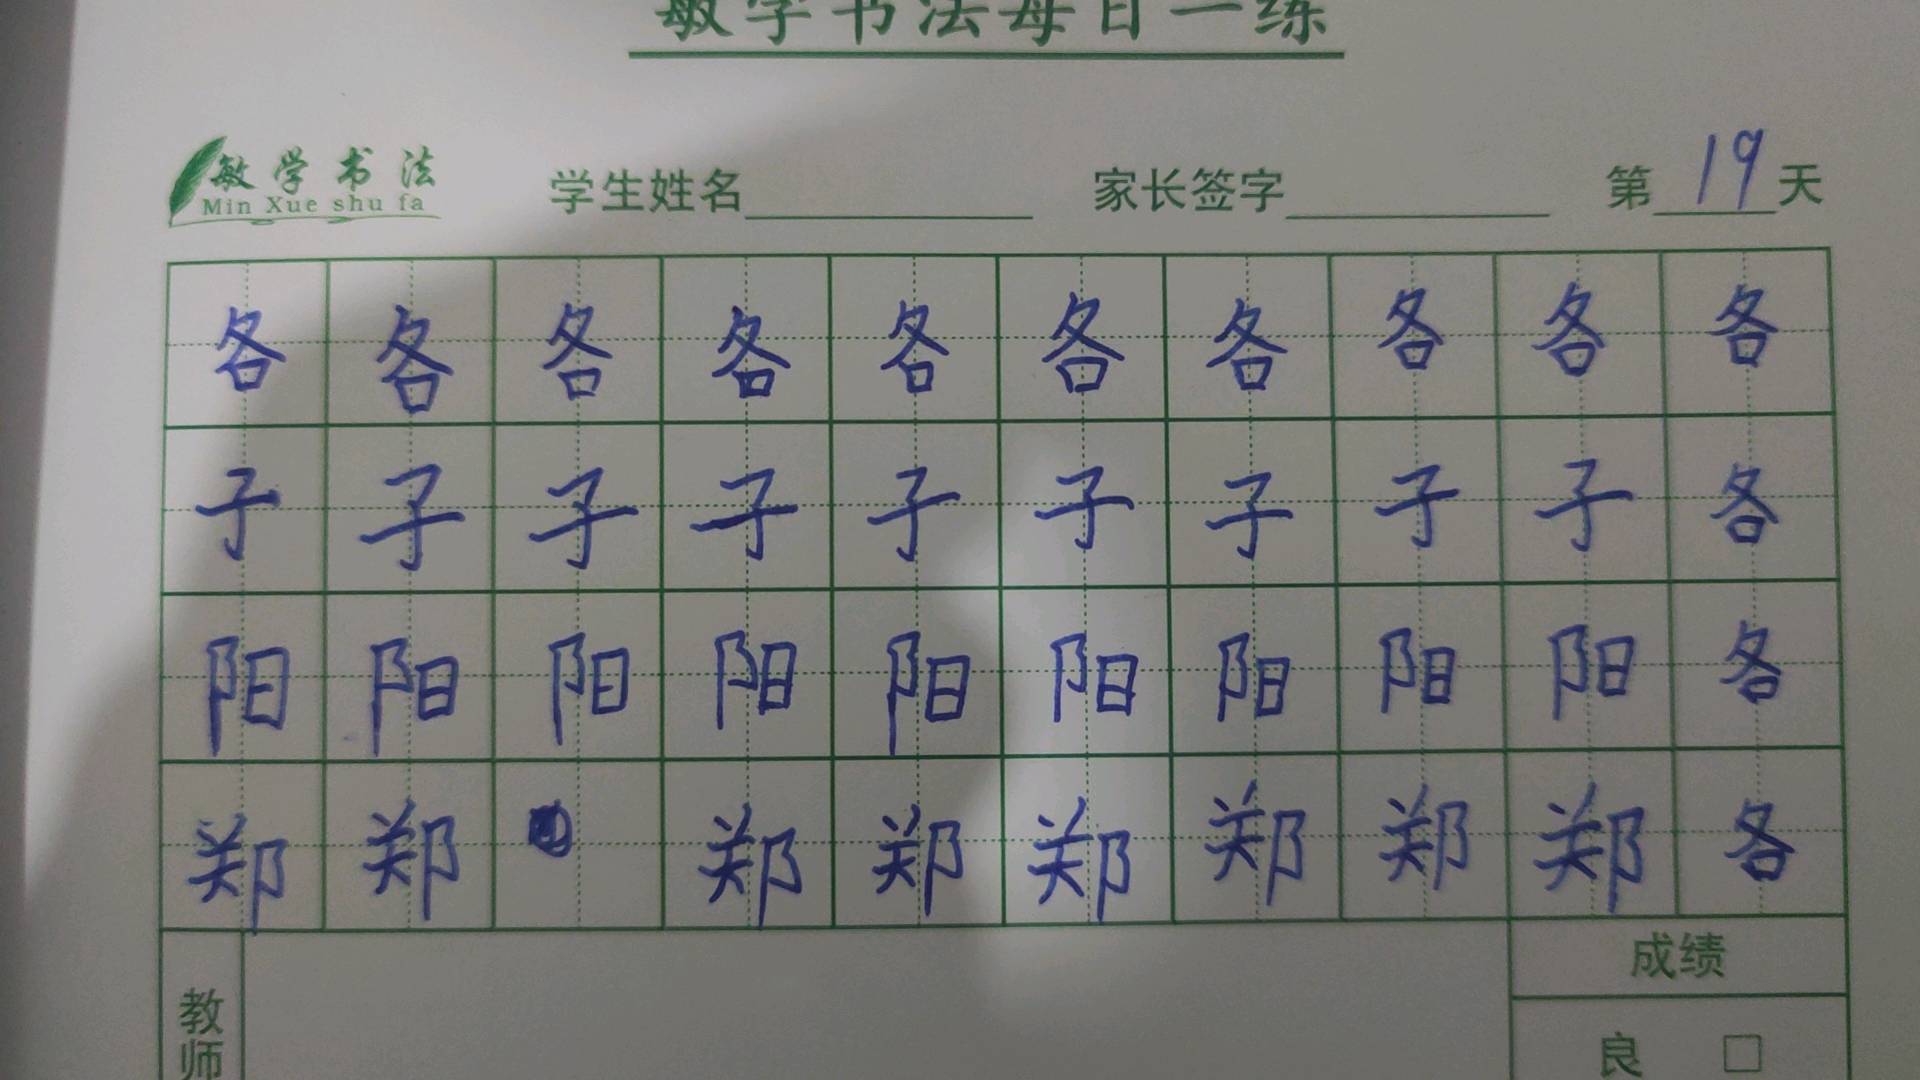 敏学书法每日一练
敏学书法
Min Xue shu fa
学生姓名 家长签字 第19天
各各各各各各各各各各
子子子子子子子子子各
阳阳阳阳阳阳阳阳阳各
郑郑郑郑郑郑郑郑各
成绩
教师
良